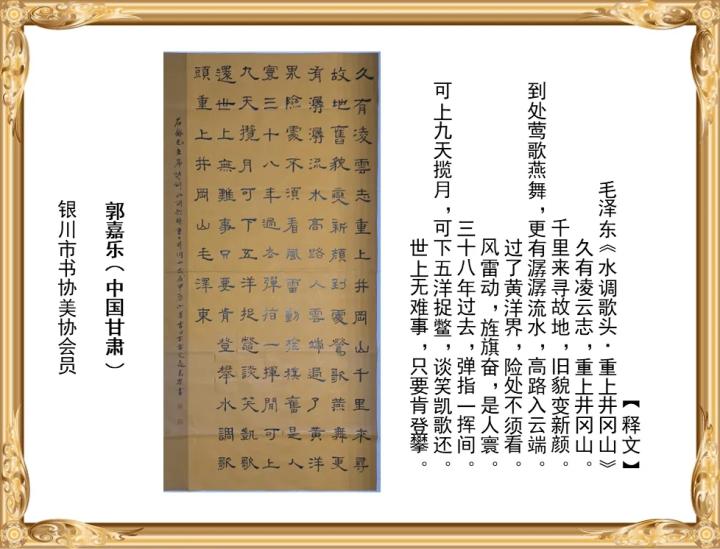 【释文】
毛泽东《水调歌头·重上井冈山》
久有凌云志，重上井冈山。
千里来寻故地，旧貌变新颜。
到处莺歌燕舞，更有潺潺流水，高路入云端。
过了黄洋界，险处不须看。
风雷动，旌旗奋，是人寰。
三十八年过去，弹指一挥间。
可上九天揽月，可下五洋捉鳖，谈笑凯歌还。
世上无难事，只要肯登攀。
久有凌雲志重上井岡山千里來尋
故地舊貌變新顏到處鶯歌燕舞更
有潺潺流水高路入雲端過了黃洋
界險處不須看風雷動旌旗奮是人
寰三十八年過去彈指一揮間可上
九天攬月可下五洋捉鱉談笑凱歌
還世上無難事只要肯登攀水調歌
頭重上井岡山毛澤東
郭嘉乐（中国甘肃）
银川市书协美协会员